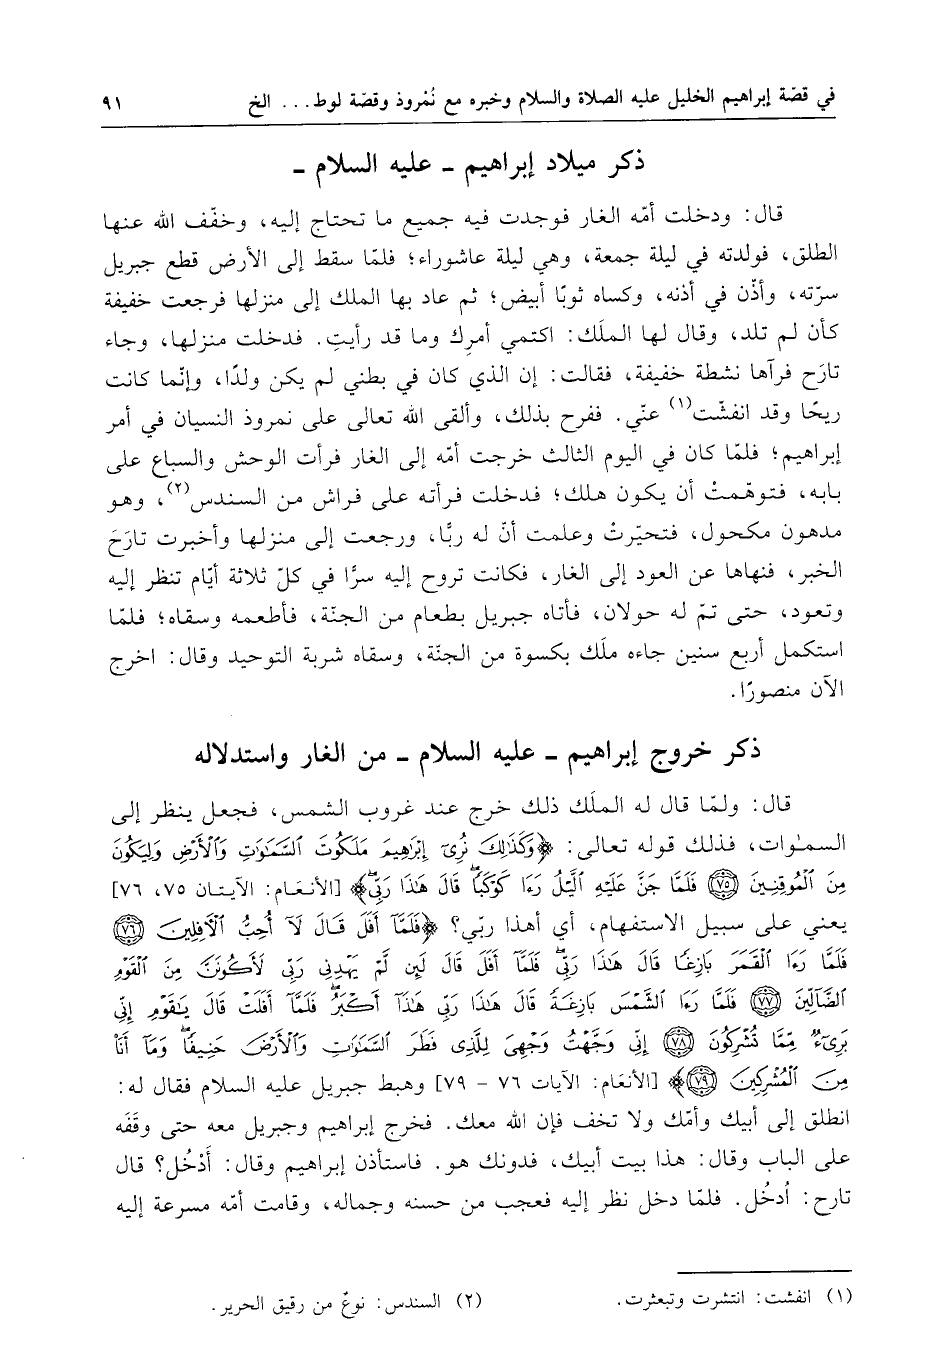 في قصّة إبراهيم الخليل عليه الصلاة والسلام وخبره مع نُمْروذ وقصّة لوط... الخ ٩١
ذكر ميلاد إبراهيم ـ عليه السلام ـ
قال: ودخلت أمّه الغار فوجدت فيه جميع ما تحتاج إليه، وخفّف الله عنها
الطلق، فولدته في ليلة جمعة، وهي ليلة عاشوراء؛ فلمّا سقط إلى الأرض قطع جبريل
سرّته، وأذّن في أذنه، وكساه ثوبًا أبيض؛ ثم عاد بها الملك إلى منزلها فرجعت خفيفة
كأن لم تلد، وقال لها الملَك: اكتمي أمرك وما قد رأيتِ. فدخلت منزلها، وجاء
تارَح فرآها نشطة خفيفة، فقالت: إن الذي كان في بطني لم يكن ولدًا، وإنّما كانت
ريحًا وقد انفشّت(١) عنّي. ففرح بذلك، وألقى الله تعالى على نمروذ النسيان في أمر
إبراهيم؛ فلمّا كان في اليوم الثالث خرجت أمّه إلى الغار فرأت الوحش والسباع على
بابه، فتوهّمتْ أن يكون هلك؛ فدخلت فرأته على فراش من السندس(٢)، وهو
مدهون مكحول، فتحيّرتْ وعلمت أنّ له ربًّا، ورجعت إلى منزلها وأخبرت تارَحَ
الخبر، فنهاها عن العود إلى الغار، فكانت تروح إليه سرًّا في كلّ ثلاثة أيّام تنظر إليه
وتعود، حتى تمّ له حولان، فأتاه جبريل بطعام من الجنّة، فأطعمه وسقاه؛ فلمّا
استكمل أربع سنين جاءه ملَك بكسوة من الجنّة، وسقاه شربة التوحيد وقال: اخرج
الآن منصورًا.
ذكر خروج إبراهيم ـ عليه السلام ـ من الغار واستدلاله
قال: ولمّا قال له الملَك ذلك خرج عند غروب الشمس، فجعل ينظر إلى
السمٰوات، فذلك قوله تعالى: ﴿وَكَذَٰلِكَ نُرِىٓ إِبْرَٰهِيمَ مَلَكُوتَ ٱلسَّمَٰوَٰتِ وَٱلْأَرْضِ وَلِيَكُونَ
مِنَ ٱلْمُوقِنِينَ ﴿٧٥﴾ فَلَمَّا جَنَّ عَلَيْهِ ٱلَّيْلُ رَءَا كَوْكَبًا ۖ قَالَ هَٰذَا رَبِّى ۖ﴾ [الأنعَام: الآيتان ٧٥، ٧٦]
يعني على سبيل الاستفهام، أي أهذا ربّي؟ ﴿فَلَمَّآ أَفَلَ قَالَ لَآ أُحِبُّ ٱلْءَافِلِينَ ﴿٧٦﴾
فَلَمَّا رَءَا ٱلْقَمَرَ بَازِغًا قَالَ هَٰذَا رَبِّى ۖ فَلَمَّآ أَفَلَ قَالَ لَئِن لَّمْ يَهْدِنِى رَبِّى لَأَكُونَنَّ مِنَ ٱلْقَوْمِ
ٱلضَّآلِّينَ ﴿٧٧﴾ فَلَمَّا رَءَا ٱلشَّمْسَ بَازِغَةً قَالَ هَٰذَا رَبِّى هَٰذَآ أَكْبَرُ ۖ فَلَمَّآ أَفَلَتْ قَالَ يَٰقَوْمِ إِنِّى
بَرِىٓءٌ مِّمَّا تُشْرِكُونَ ﴿٧٨﴾ إِنِّى وَجَّهْتُ وَجْهِىَ لِلَّذِى فَطَرَ ٱلسَّمَٰوَٰتِ وَٱلْأَرْضَ حَنِيفًا ۖ وَمَآ أَنَا۠
مِنَ ٱلْمُشْرِكِينَ ﴿٧٩﴾﴾ [الأنعَام: الآيات ٧٦ - ٧٩] وهبط جبريل عليه السلام فقال له:
انطلق إلى أبيك وأمّك ولا تخف فإن الله معك. فخرج إبراهيم وجبريل معه حتى وقفَه
على الباب وقال: هذا بيت أبيك، فدونك هو. فاستأذن إبراهيم وقال: أَدْخُل؟ قال
تارح: اُدخُل. فلمّا دخل نظر إليه فعجب من حسنه وجماله، وقامت أمّه مسرعة إليه
(١) انفشت: انتشرت وتبعثرت. (٢) السندس: نوعٌ من رقيق الحرير.